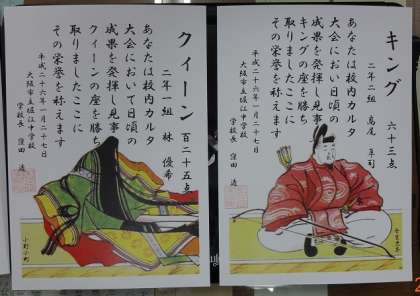 キング 六十三点
二年二組 高尾
あなたは校内カルタ
大会において日頃の
成果を発揮し見事
キングの座を勝ち
取りましたここに
その栄誉を称えます
平成二十六年一月二十七日
大阪市立堀江中学校
学校長 窪田
クィーン 百二十五点
二年一組 林 優希
あなたは校内カルタ
大会において日頃の
成果を発揮し見事
クィーンの座を勝ち
取りましたここに
その栄誉を称えます
平成二十六年一月二十七日
大阪市立堀江中学校
学校長 窪田
小野小町